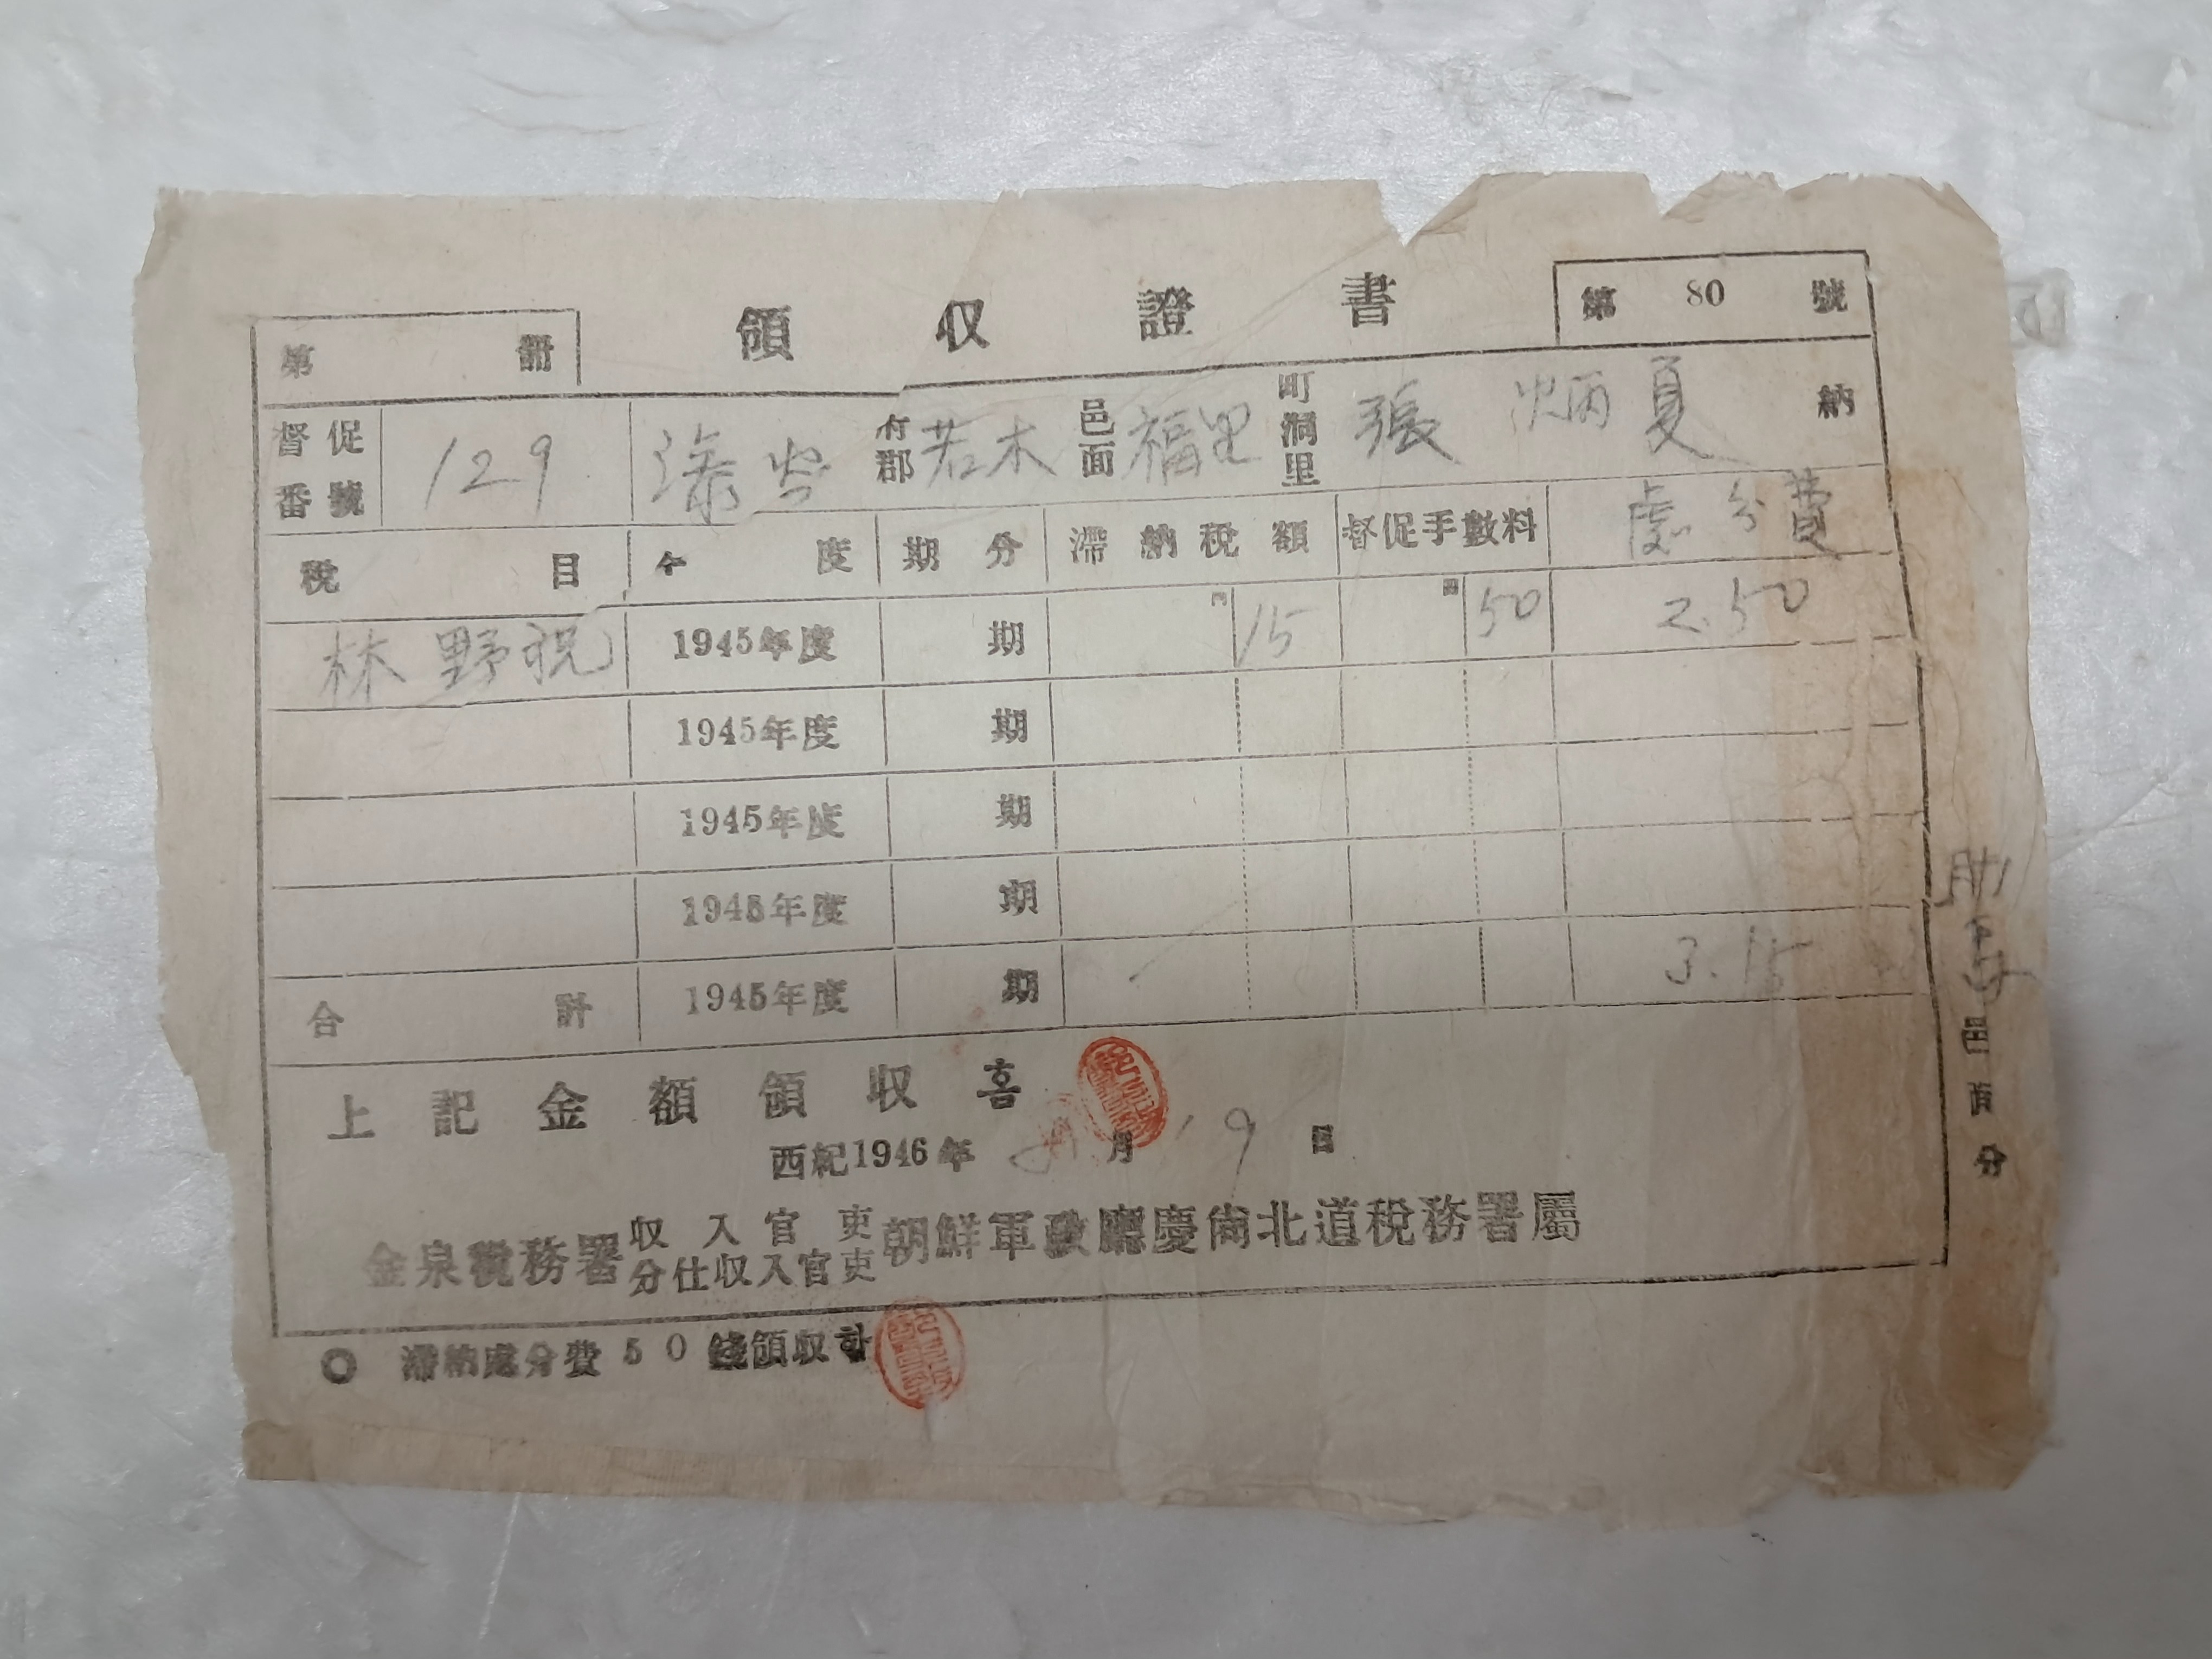 領収證書
第 80 號
第 冊
督促番號 129 漆谷 府郡 若木 邑面 福星 町洞里 張炳夏 納
税目 年度 期分 滯納税額 督促手數料 處分費
林野税 1945年度 期 15 50 2.50
1945年度 期
1945年度 期
1945年度 期
合計 1945年度 期 3.15
上記金額領収홈
西紀1946年 月 19 日
金泉税務署 収入官吏 分任収入官吏 朝鮮軍政廳慶尚北道税務署屬
○ 滯納處分費50錢領収함
邑面分